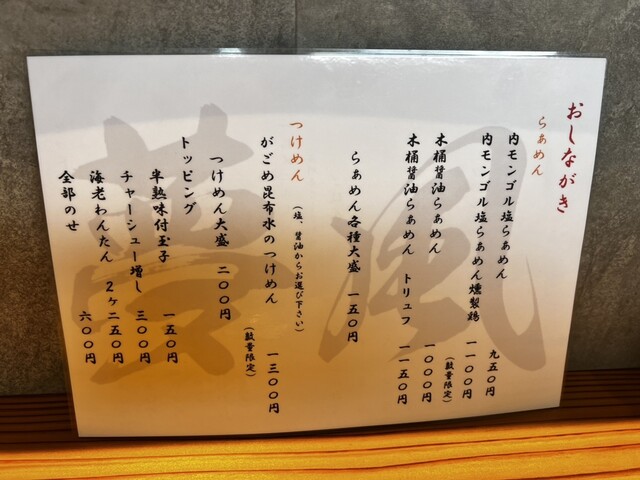 おしながき
らぁめん
内モンゴル塩らぁめん 九五〇円
内モンゴル塩らぁめん燻製鶏 一一〇〇円
(数量限定)
木桶醤油らぁめん 一〇〇〇円
木桶醤油らぁめん トリュフ 一一五〇円
らぁめん各種大盛 一五〇円
つけめん
(塩、醤油からお選び下さい)
がごめ昆布水のつけめん 一三〇〇円
(数量限定)
つけめん大盛 二〇〇円
トッピング
半熟味付玉子 一五〇円
チャーシュー増し 三〇〇円
海老わんたん 2ヶ二五〇円
全部のせ 六〇〇円
風夢